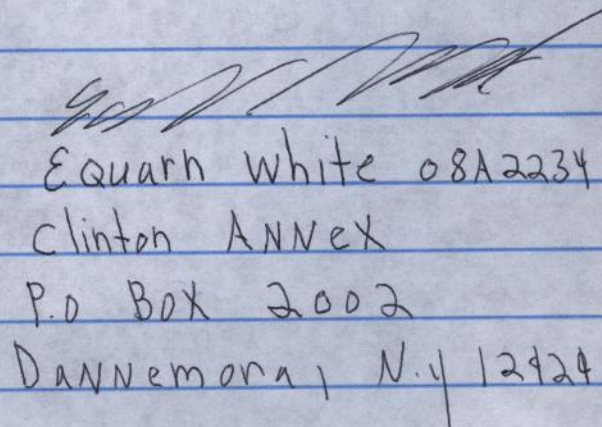 Equarn White 08A2234
Clinton ANNEX
P.O BOX 2002
DaNNemora, N.y 12424